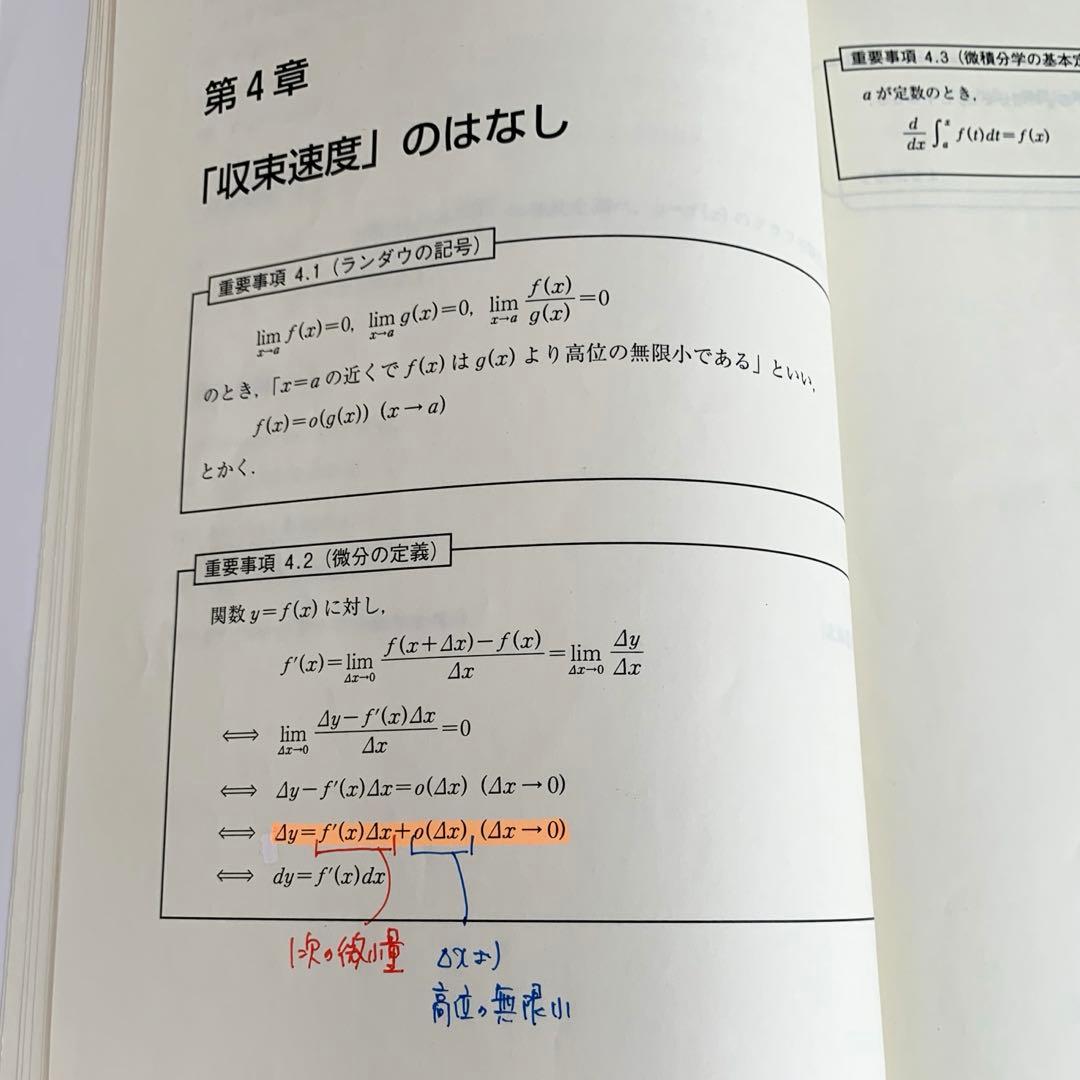 第4章
「収束速度」のはなし
重要事項 4.1（ランダウの記号）
lim_{x→a} f(x)=0, lim_{x→a} g(x)=0, lim_{x→a} f(x)/g(x)=0
のとき，「x=a の近くで f(x) は g(x) より高位の無限小である」といい，
f(x)=o(g(x)) (x→a)
とかく．
重要事項 4.2（微分の定義）
関数 y=f(x) に対し，
f′(x)=lim_{Δx→0} (f(x+Δx)−f(x))/Δx=lim_{Δx→0} Δy/Δx
⟺ lim_{Δx→0} (Δy−f′(x)Δx)/Δx=0
⟺ Δy−f′(x)Δx=o(Δx) (Δx→0)
⟺ Δy=f′(x)Δx+o(Δx) (Δx→0)
⟺ dy=f′(x)dx
1次の微小量
Δxより
高位の無限小
重要事項 4.3（微積分学の基本定
a が定数のとき，
d/dx ∫_a^x f(t)dt=f(x)